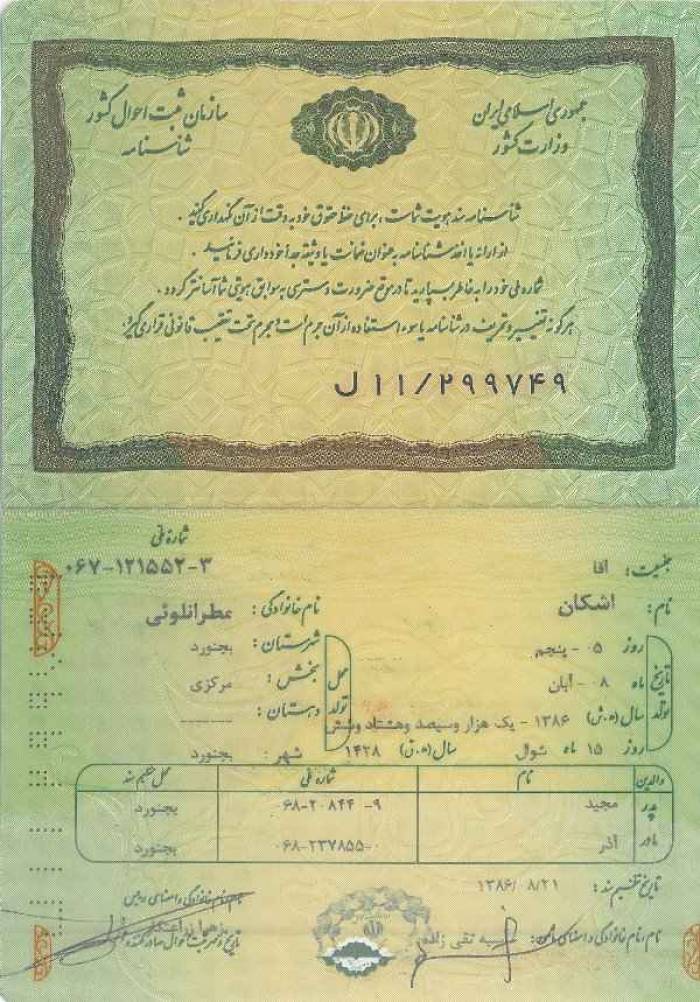 جمهوری اسلامی ایران
وزارت کشور
سازمان ثبت احوال کشور
شناسنامه
شناسنامه سند هویت شماست، برای حفظ حقوق خود به دقت از آن نگهداری کنید.
از ارائه یا اخذ شناسنامه به عنوان ضمانت یا وثیقه جداً خودداری فرمائید.
شماره ملی خود را به خاطر بسپارید تا در موقع ضرورت دسترسی به سوابق هویتی شما آسانتر گردد.
هر گونه تغییر و تحریف در شناسنامه یا سوء استفاده از آن جرم است و مجرم تحت تعقیب قانونی قرار می گیرد.
ل ۱۱/۲۹۹۷۴۹
شماره ملی
۰۶۷-۱۲۱۵۵۲-۳
جنسیت: اقا
نام: اشکان
نام خانوادگی: عطرانلوئی
تاریخ تولد
روز ۰۵ - پنجم
ماه ۰۸ - آبان
سال (ه.ش) ۱۳۸۶ - یک هزار وسیصد وهشتاد وشش
روز ۱۵ ماه شوال سال (ه.ق) ۱۴۲۸
محل تولد
شهرستان: بجنورد
بخش: مرکزی
دهستان: ------
شهر: بجنورد
والدین نام شماره ملی محل تنظیم سند
پدر مجید ۰۶۸-۲۰۸۴۴ -۹ بجنورد
مادر آذر ۰۶۸-۲۳۷۸۵۵-۰ بجنورد
تاریخ تنظیم سند: ۱۳۸۶/ ۸/۲۱
نام، نام خانوادگی و امضای مامور: تقی زاده
نام، نام خانوادگی و امضای رئیس